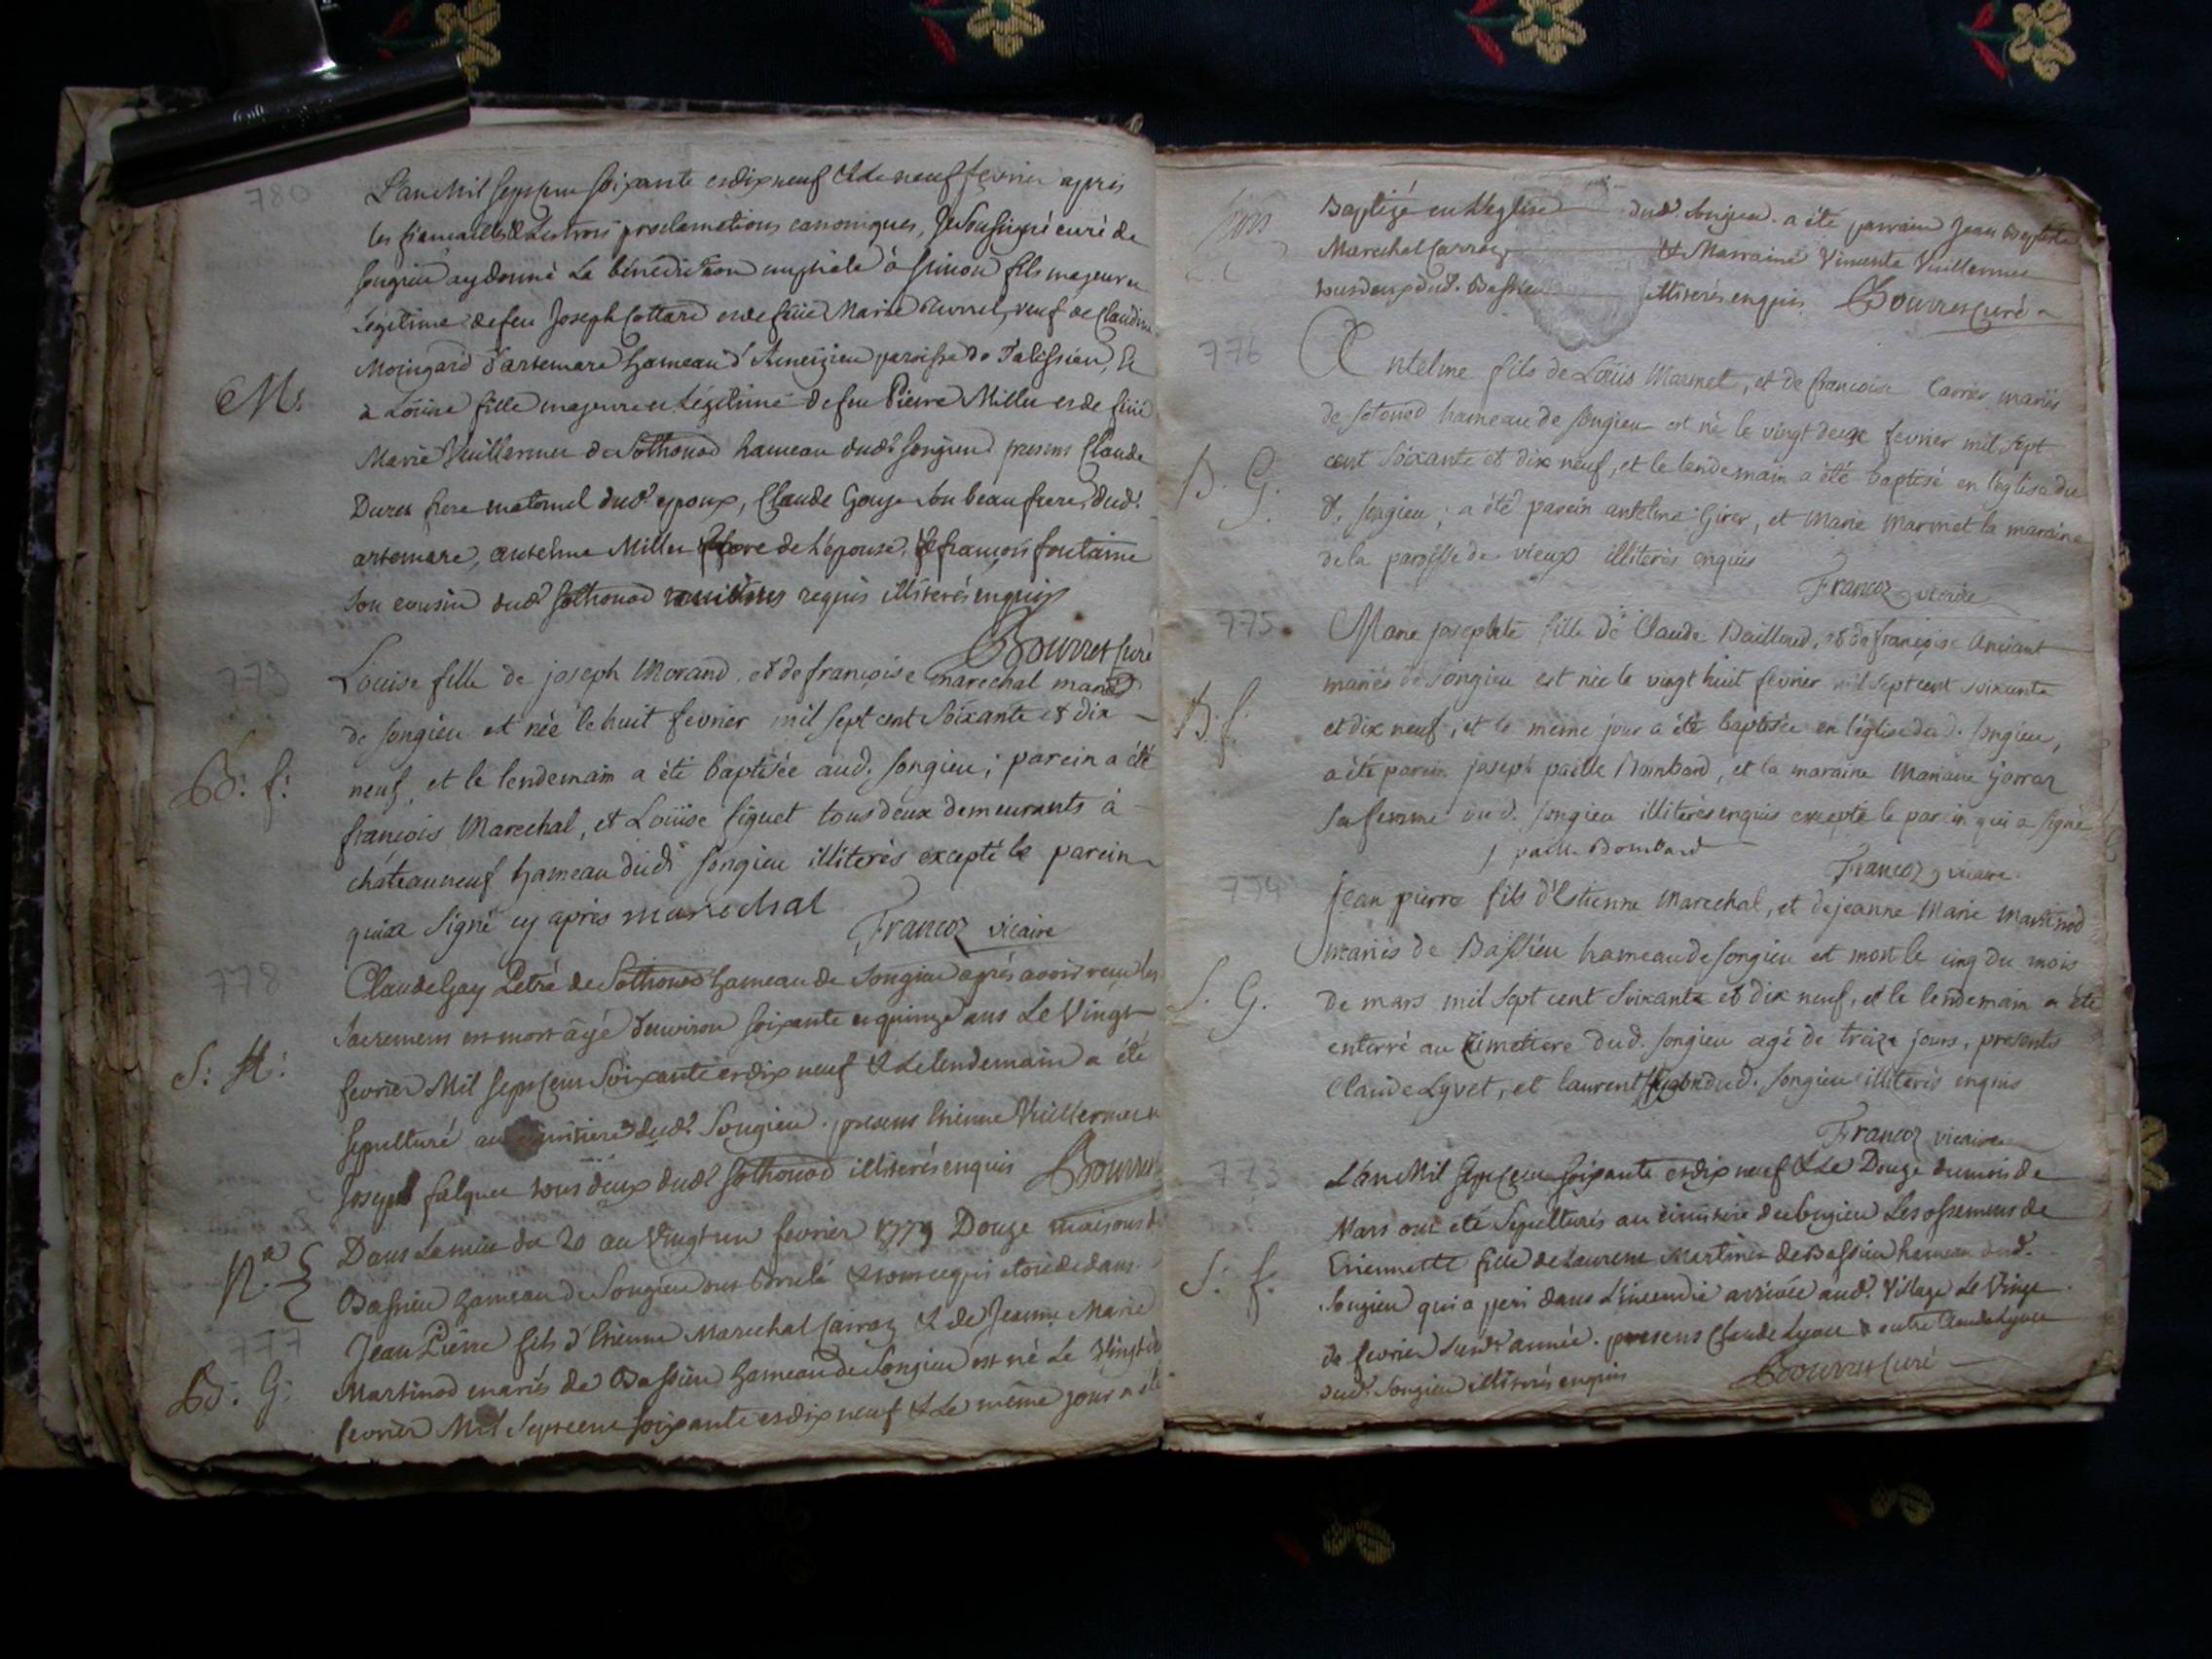 780
L'an Mil sept cens soixante et dix neuf & Le neuf fevrier après
les fiancailles & Les trois proclamations canoniques, Je soussigné curé de
songieu ay donné La bénédiction nuptiale à simon fils majeur et
Légitime de feu Joseph Cottard et de feüe Marie Burrel, veuf de Claudine
Moingard d'artemare hameau d'Ameizieu paroisse de Talissieu, &
M:
à Loüise fille majeure et Légitime de feu Pierre Millet et de feüe
Marie Vuillermet de Sothonod hameau dud. songieu. presens Claude
Duret frere maternel dud. epoux, Claude Gouje son beau frere, dud.
artemare, antelme Millet frere de l'épouse, & françois fontaine
son cousin dud. sothonod requis illiterés enquis
Bourret Curé
779
Louise fille de joseph Morand, et de françoise marechal mariés
de songieu est née le huit fevrier mil sept cent soixante et dix
B: f:
neuf, et le lendemain a été baptisée aud. songieu; parein a été
francois Marechal, et Loüise siguet tous deux demeurants à
châteauneuf hameau dud. songieu illiterés excepté le parein
qui a signé cy après marechal
Francoz vicaire
778
Claude Gay Petré de Sothonod hameau de Songieu après avoir reçu les
sacremens est mort âgé d'environ soixante et quinze ans Le Vingt
S: H:
fevrier Mil sept cens soixante et dix neuf & Le lendemain a été
sepulturé au cimitiere dud. Songieu. presens Etienne Vuillermet &
Joseph falquet tous deux dud. sothonod illiterés enquis Bourret
N.a
Dans La nuit du 20 au Vingt un fevrier 1779 Douze maisons de
Bassieu hameau de Songieu ont brulé & tout ce qui étoit dedans
777
Jean Pierre fils d'Etienne Marechal Carraz & de Jeanne Marie
B: G:
Martinod mariés de Bassieu hameau de Songieu est né Le Vingt
fevrier Mil Sept cens soixante et dix neuf & Le même jour a été
Baptizé en L'eglise dud. songieu. a été parrain Jean Baptiste
Marechal Carraz & Marraine Vincente Vuillermet
tous deux dud. Bassieu illiterés enquis. Bourret Curé
776
Antelme fils de Loüis Marmet, et de francoise Carrier mariés
de sotonod hameau de songieu est né le vingt deux fevrier mil sept
B. G.
cent soixante et dix neuf, et le lendemain a été baptisé en l'église du
d. songieu; a été parein antelme Girer, et Marie Marmet la maraine
de la paroisse de vieux illiterés enquis
Francoz vicaire
775
Marie josephte fille de Claude Bailloud, et de françoise Ancian
mariés de Songieu est née le vingt huit fevrier mil sept cent soixante
B. f.
et dix neuf, et le même jour a été baptisée en l'église dud. songieu,
a été parein joseph paille Bombard, et la maraine Mariane
sa femme dud. songieu illiterés enquis excepté le parein qui a signé
j paille Bombard
Francoz vicaire
774
jean pierre fils d'Estienne Marechal, et de jeanne Marie Martinod
mariés de Bassieu hameau de songieu est mort le cinq du mois
S. G.
de mars mil sept cent soixante et dix neuf, et le lendemain a été
enterré au cimetiere dud. songieu agé de treize jours, presents
Claude Lyvet, et laurent dud. songieu illiterés enquis
Francoz vicaire
773
L'an Mil sept cens soixante et dix neuf & Le Douze du mois de
Mars ont été Sepulturés au cimitiere de Songieu Les ossemens de
S: f:
Etiennette fille de Laurent Martinet de Bassieu hameau dud.
songieu qui a peri dans L'incendie arrivée aud. Village Le Vingt
de fevrier susd. année. presens Claude Lyvet & autre Claude Lyvet
dud. Songieu illiterés enquis Bourret Curé